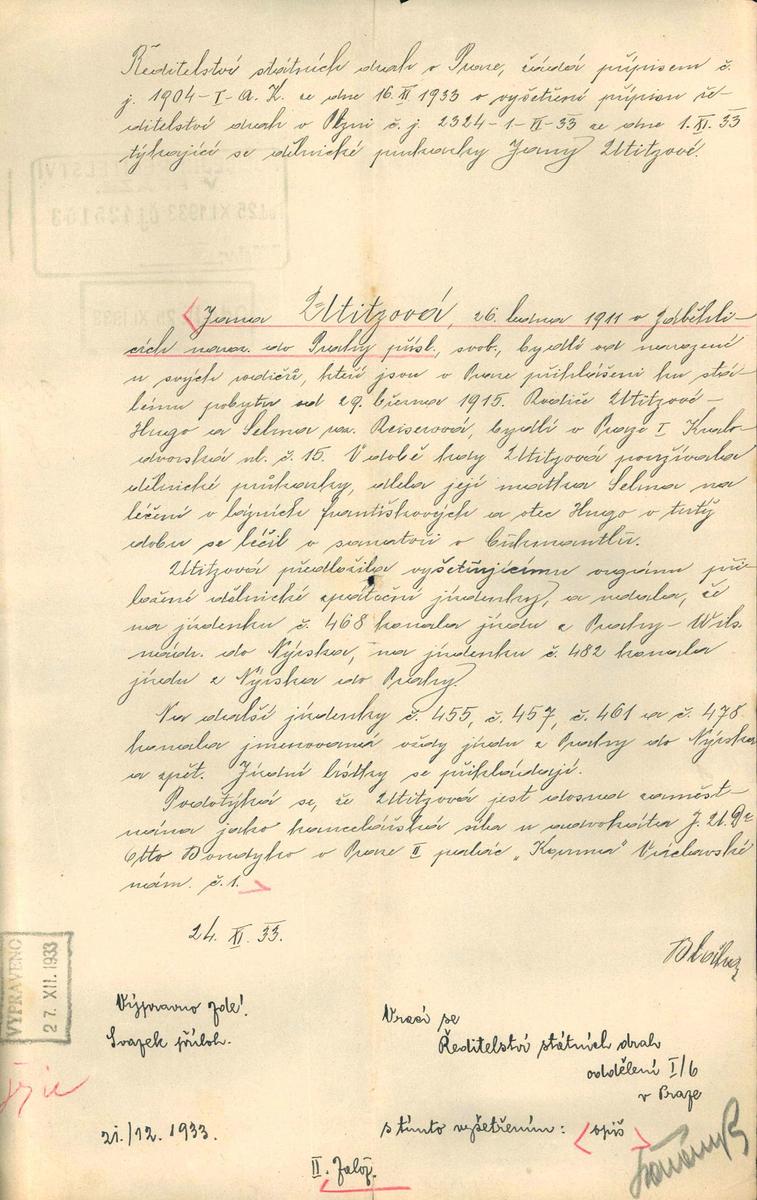 Ředitelství státních drah v Praze, žádá přípisem č.
j. 1904-I-A.K. ze dne 16.XI 1933 o vyšetření přípisu ře-
ditelství drah v Plzni č. j. 2324-1-VI-33 ze dne 1.XI.33
týkající se dělnické průkazky Jany Utitzové.
Jana Utitzová, 26. ledna 1911 v Záběhli-
cích naroz. do Prahy přísl., svob., bydlí od narození
u svých rodičů, kteří jsou v Praze přihlášeni ku stá-
lému pobytu od 29. března 1915. Rodiče Utitzové-
Hugo a Selma roz. Reiserová, bydlí v Praze I Králo-
dvorská ul. č. 15. V době kdy Utitzová používala
dělnické průkazky, dlela její matka Selma na
léčení v lázních Františkových a otec Hugo v tutýž
dobu se léčil v sanatoři v Cukmantlu.
Utitzová předložila vyšetřujícímu orgánu při-
ložené dělnické zpáteční jízdenky, a udala, že
na jízdenku č. 468 konala jízdu z Prahy-Wils.
nádr. do Nýrska, na jízdenku č. 482 konala
jízdu z Nýrska do Prahy.
Na další jízdenky č. 455, č. 457, č. 461 a č. 478
konala jmenovaná vždy jízdu z Prahy do Nýrska
a zpět. Jízdní lístky se přikládají.
Podotýká se, že Utitzová jest dosud zaměst-
nána jako kancelářská síla u advokáta J.U.Dr
Otto Bondyho v Praze II palác „Koruna" Václavské
nám. č. 1.
24. XI. 33.
VYPRAVENO
27. XII. 1933
Výpravno zde!
Svazek příloh.
Vrací se
Ředitelství státních drah
oddělení I/6
v Praze
21./12. 1933.
s tímto vyšetřením: (opis)
II. Založ.